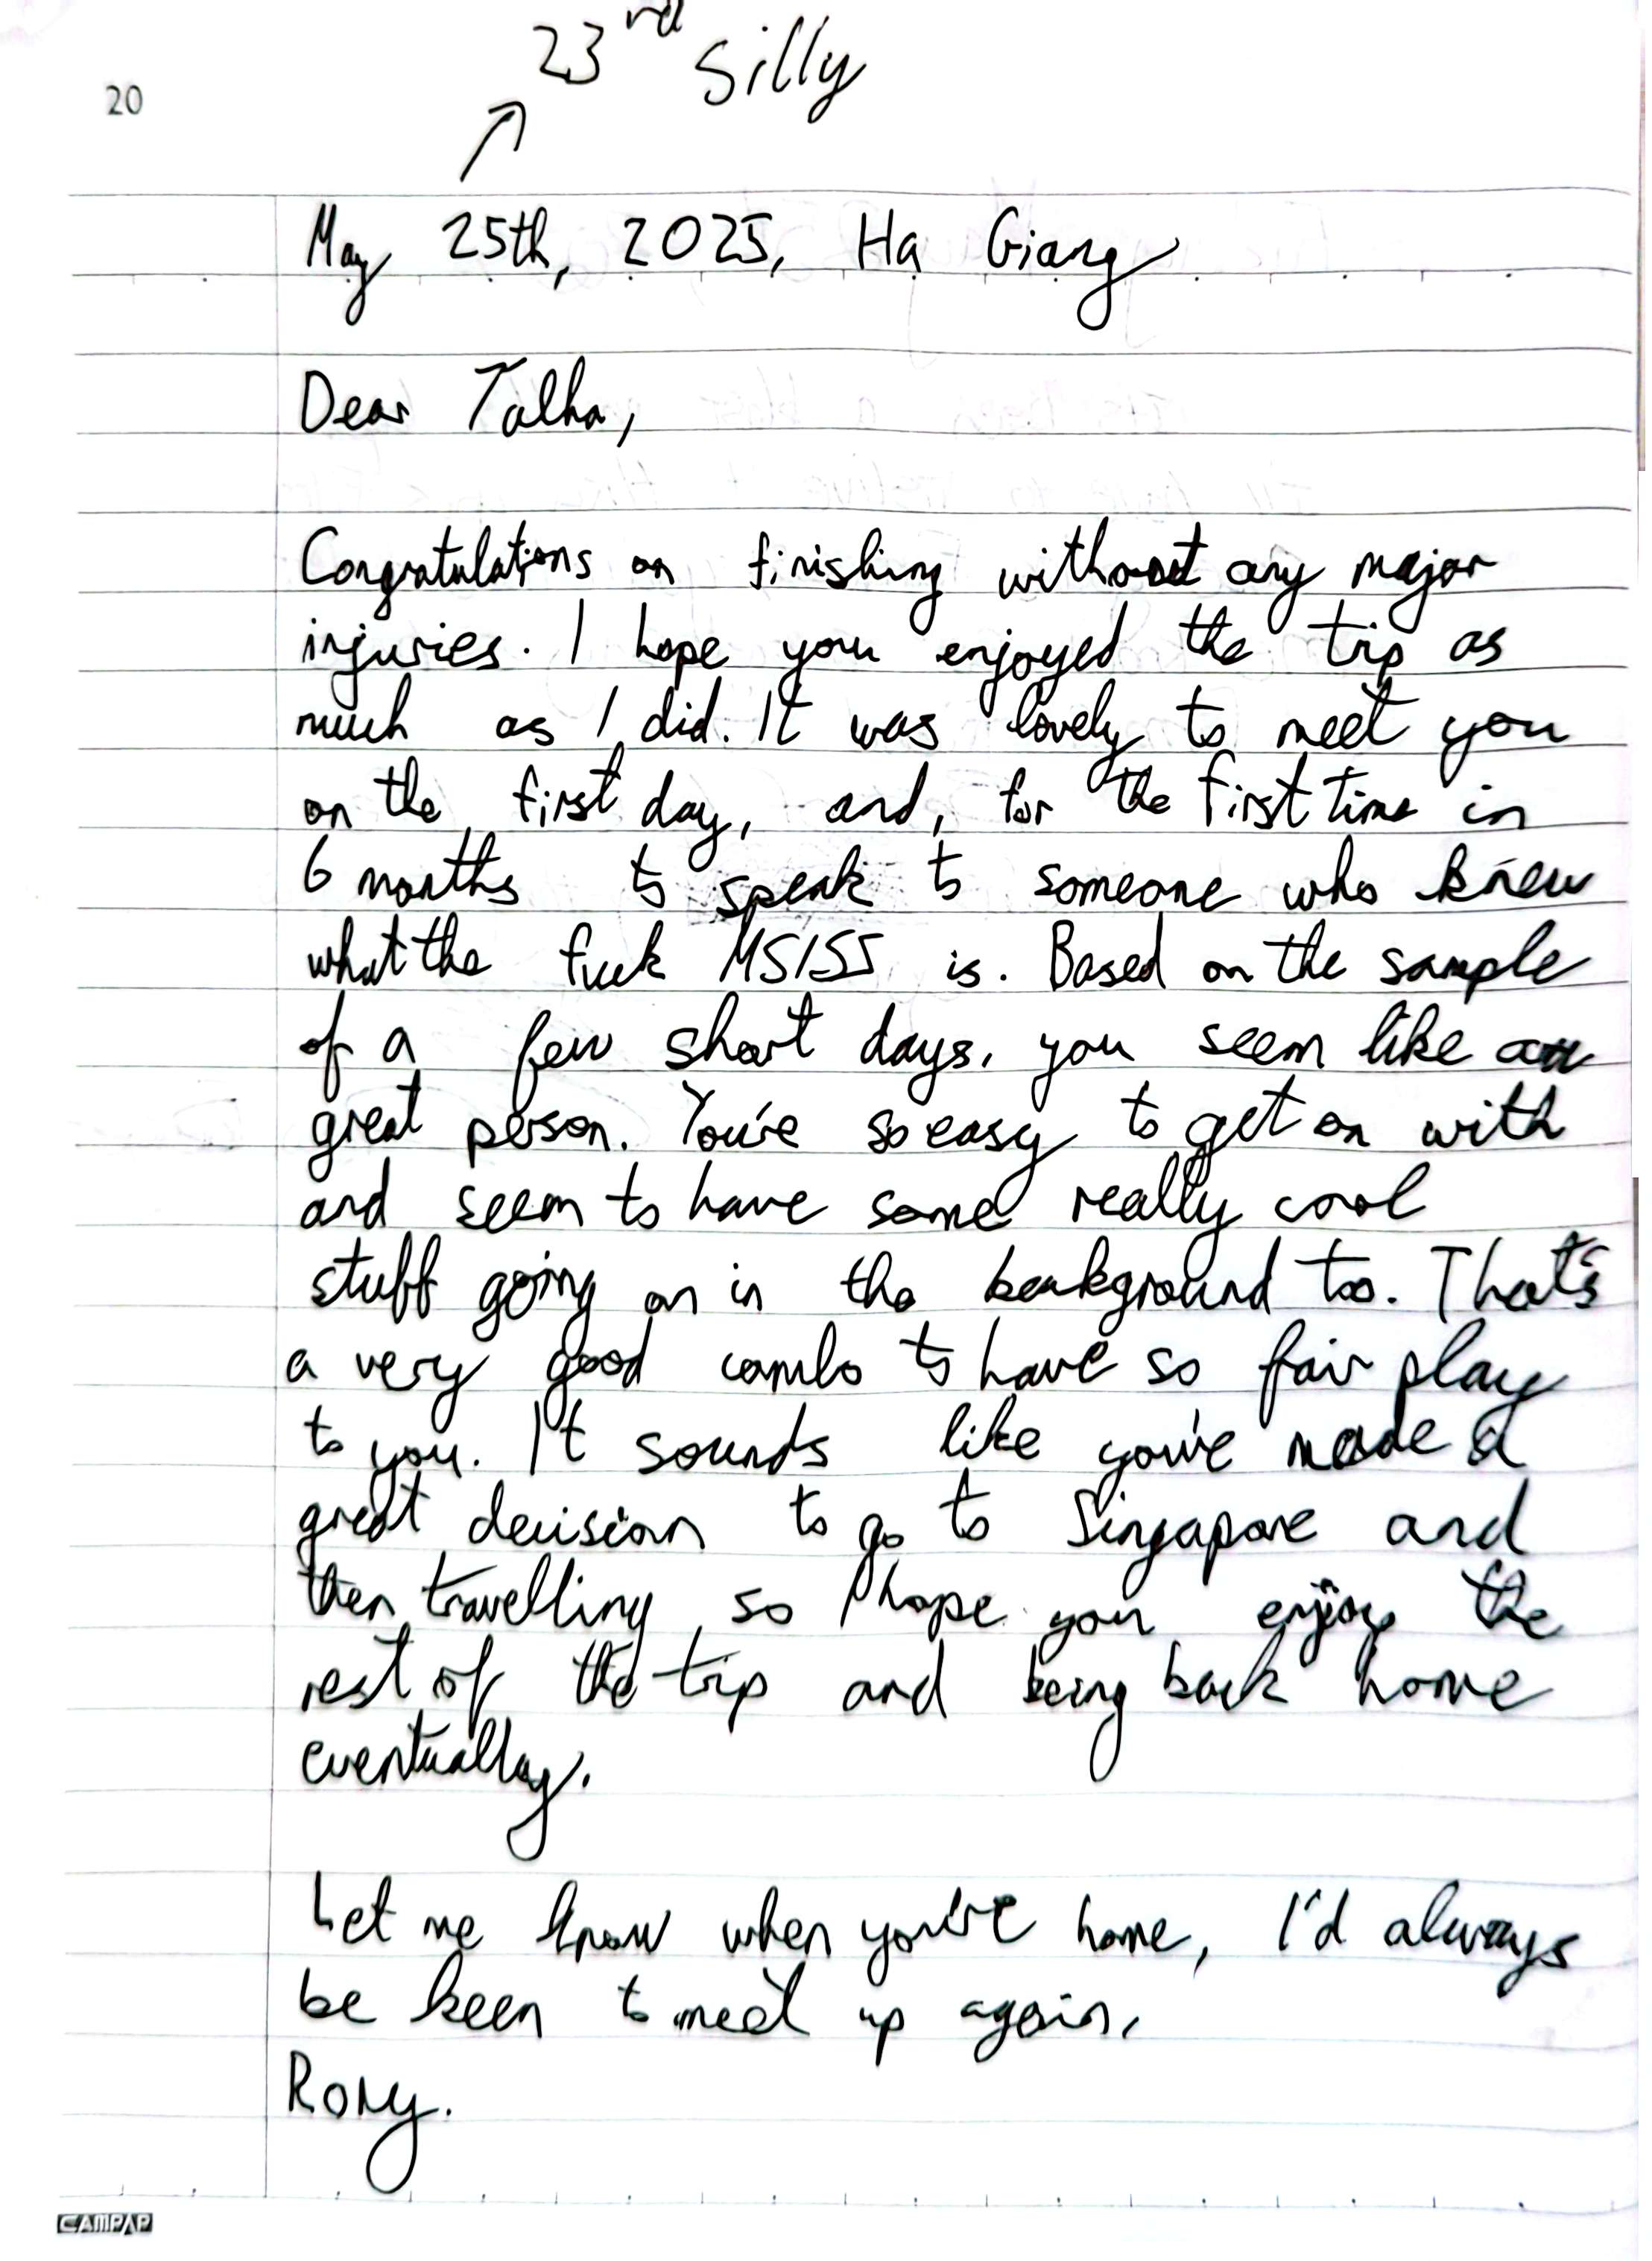 23rd Silly
20
May 25th, 2025, Ha Giang
Dear Talha,
Congratulations on finishing without any major
injuries. I hope you enjoyed the trip as
much as I did. It was lovely to meet you
on the first day, and, for the first time in
6 months to speak to someone who knew
what the fuck MSISS is. Based on the sample
of a few short days, you seem like a
great person. You're so easy to get on with
and seem to have some really cool
stuff going on in the background too. That's
a very good combo to have so fair play
to you. It sounds like you've made a
great decision to go to Singapore and
then travelling so I hope you enjoy the
rest of the trip and being back home
eventually.
Let me know when you're home, I'd always
be keen to meet up again,
Rory.
CAMPAP